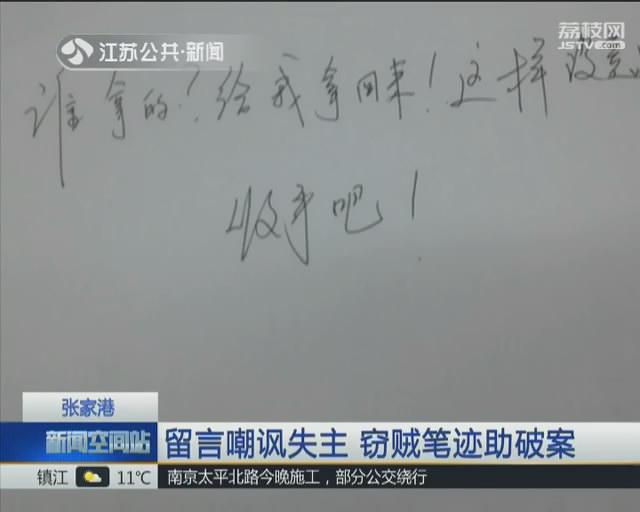 江苏公共·新闻
荔枝网
JSTV.com
谁拿的?给我拿回来!这样没意
收手吧!
张家港
新闻空间站
留言嘲讽失主 窃贼笔迹助破案
镇江 11℃
南京太平北路今晚施工，部分公交绕行